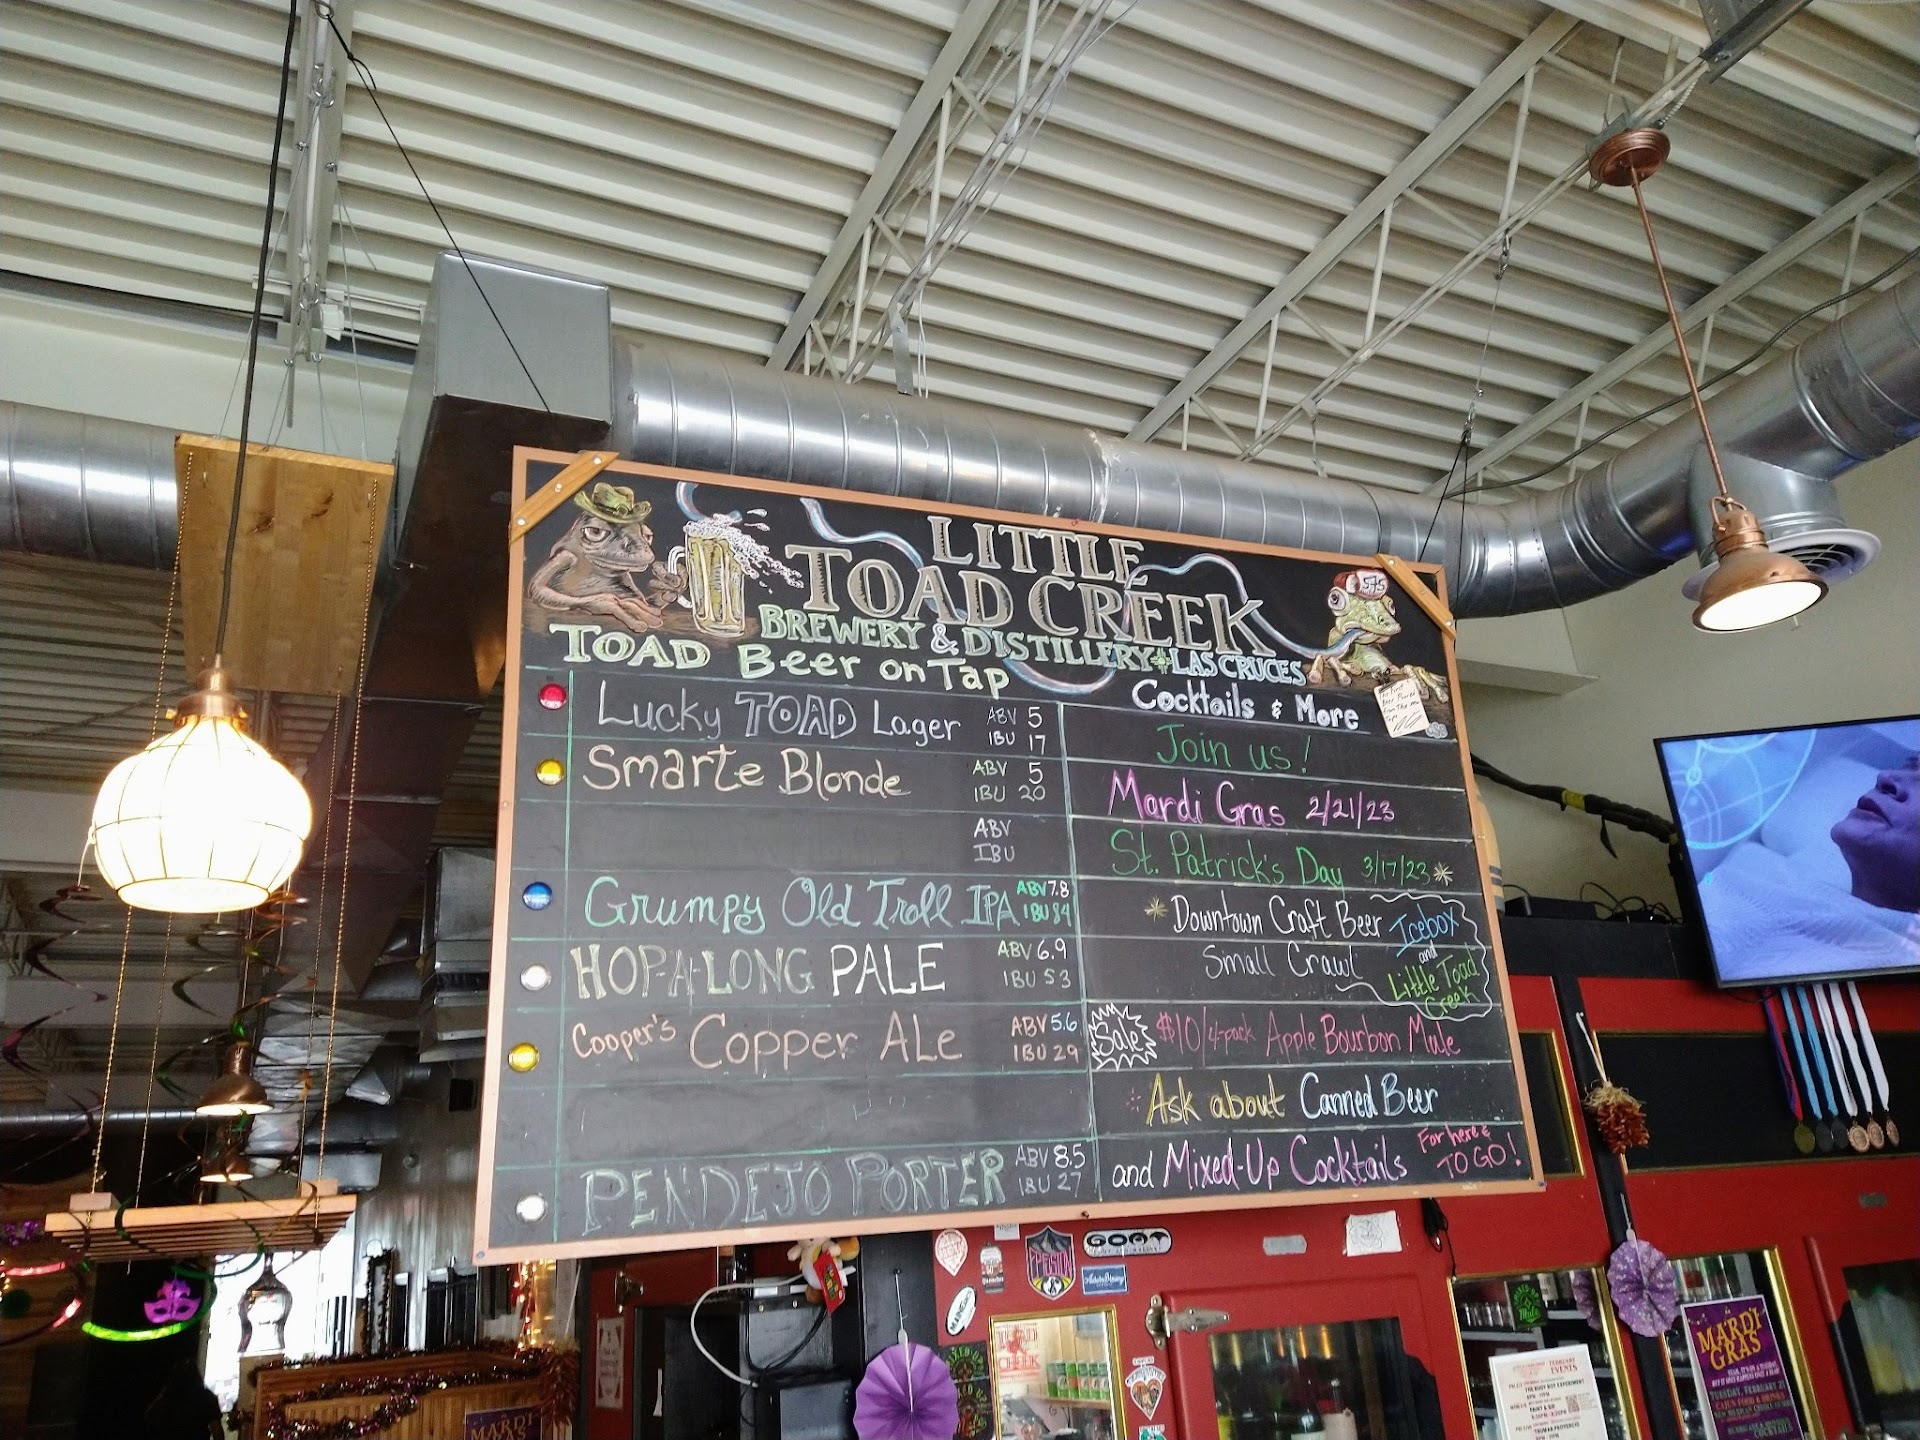 LITTLE
TOAD CREEK
BREWERY & DISTILLERY LAS CRUCES
575
TOAD Beer on Tap
Lucky TOAD Lager ABV 5
IBU 17
Smarte Blonde ABV 5
IBU 20
ABV
IBU
Grumpy Old Troll IPA ABV 7.8
IBU 84
HOP-A-LONG PALE ABV 6.9
IBU 53
Cooper's Copper ALe ABV 5.6
IBU 29
PENDEJO PORTER ABV 8.5
IBU 27
Cocktails & More
The First
Beer Poured
From The new
Taps
Join us!
Mardi Gras 2/21/23
St. Patrick's Day 3/17/23
Downtown Craft Beer
Small Crawl
Icebox
and
Little Toad
Creek
Sale $10/4-pack Apple Bourbon Mule
Ask about Canned Beer
and Mixed-Up Cocktails For here &
TO GO!
GOAT
MARDI
GRAS
TUESDAY, FEBRUARY 21
CAJUN FOOD & DRINKS
COCKTAILS
FEBRUARY
EVENTS
MARDI
CREEK